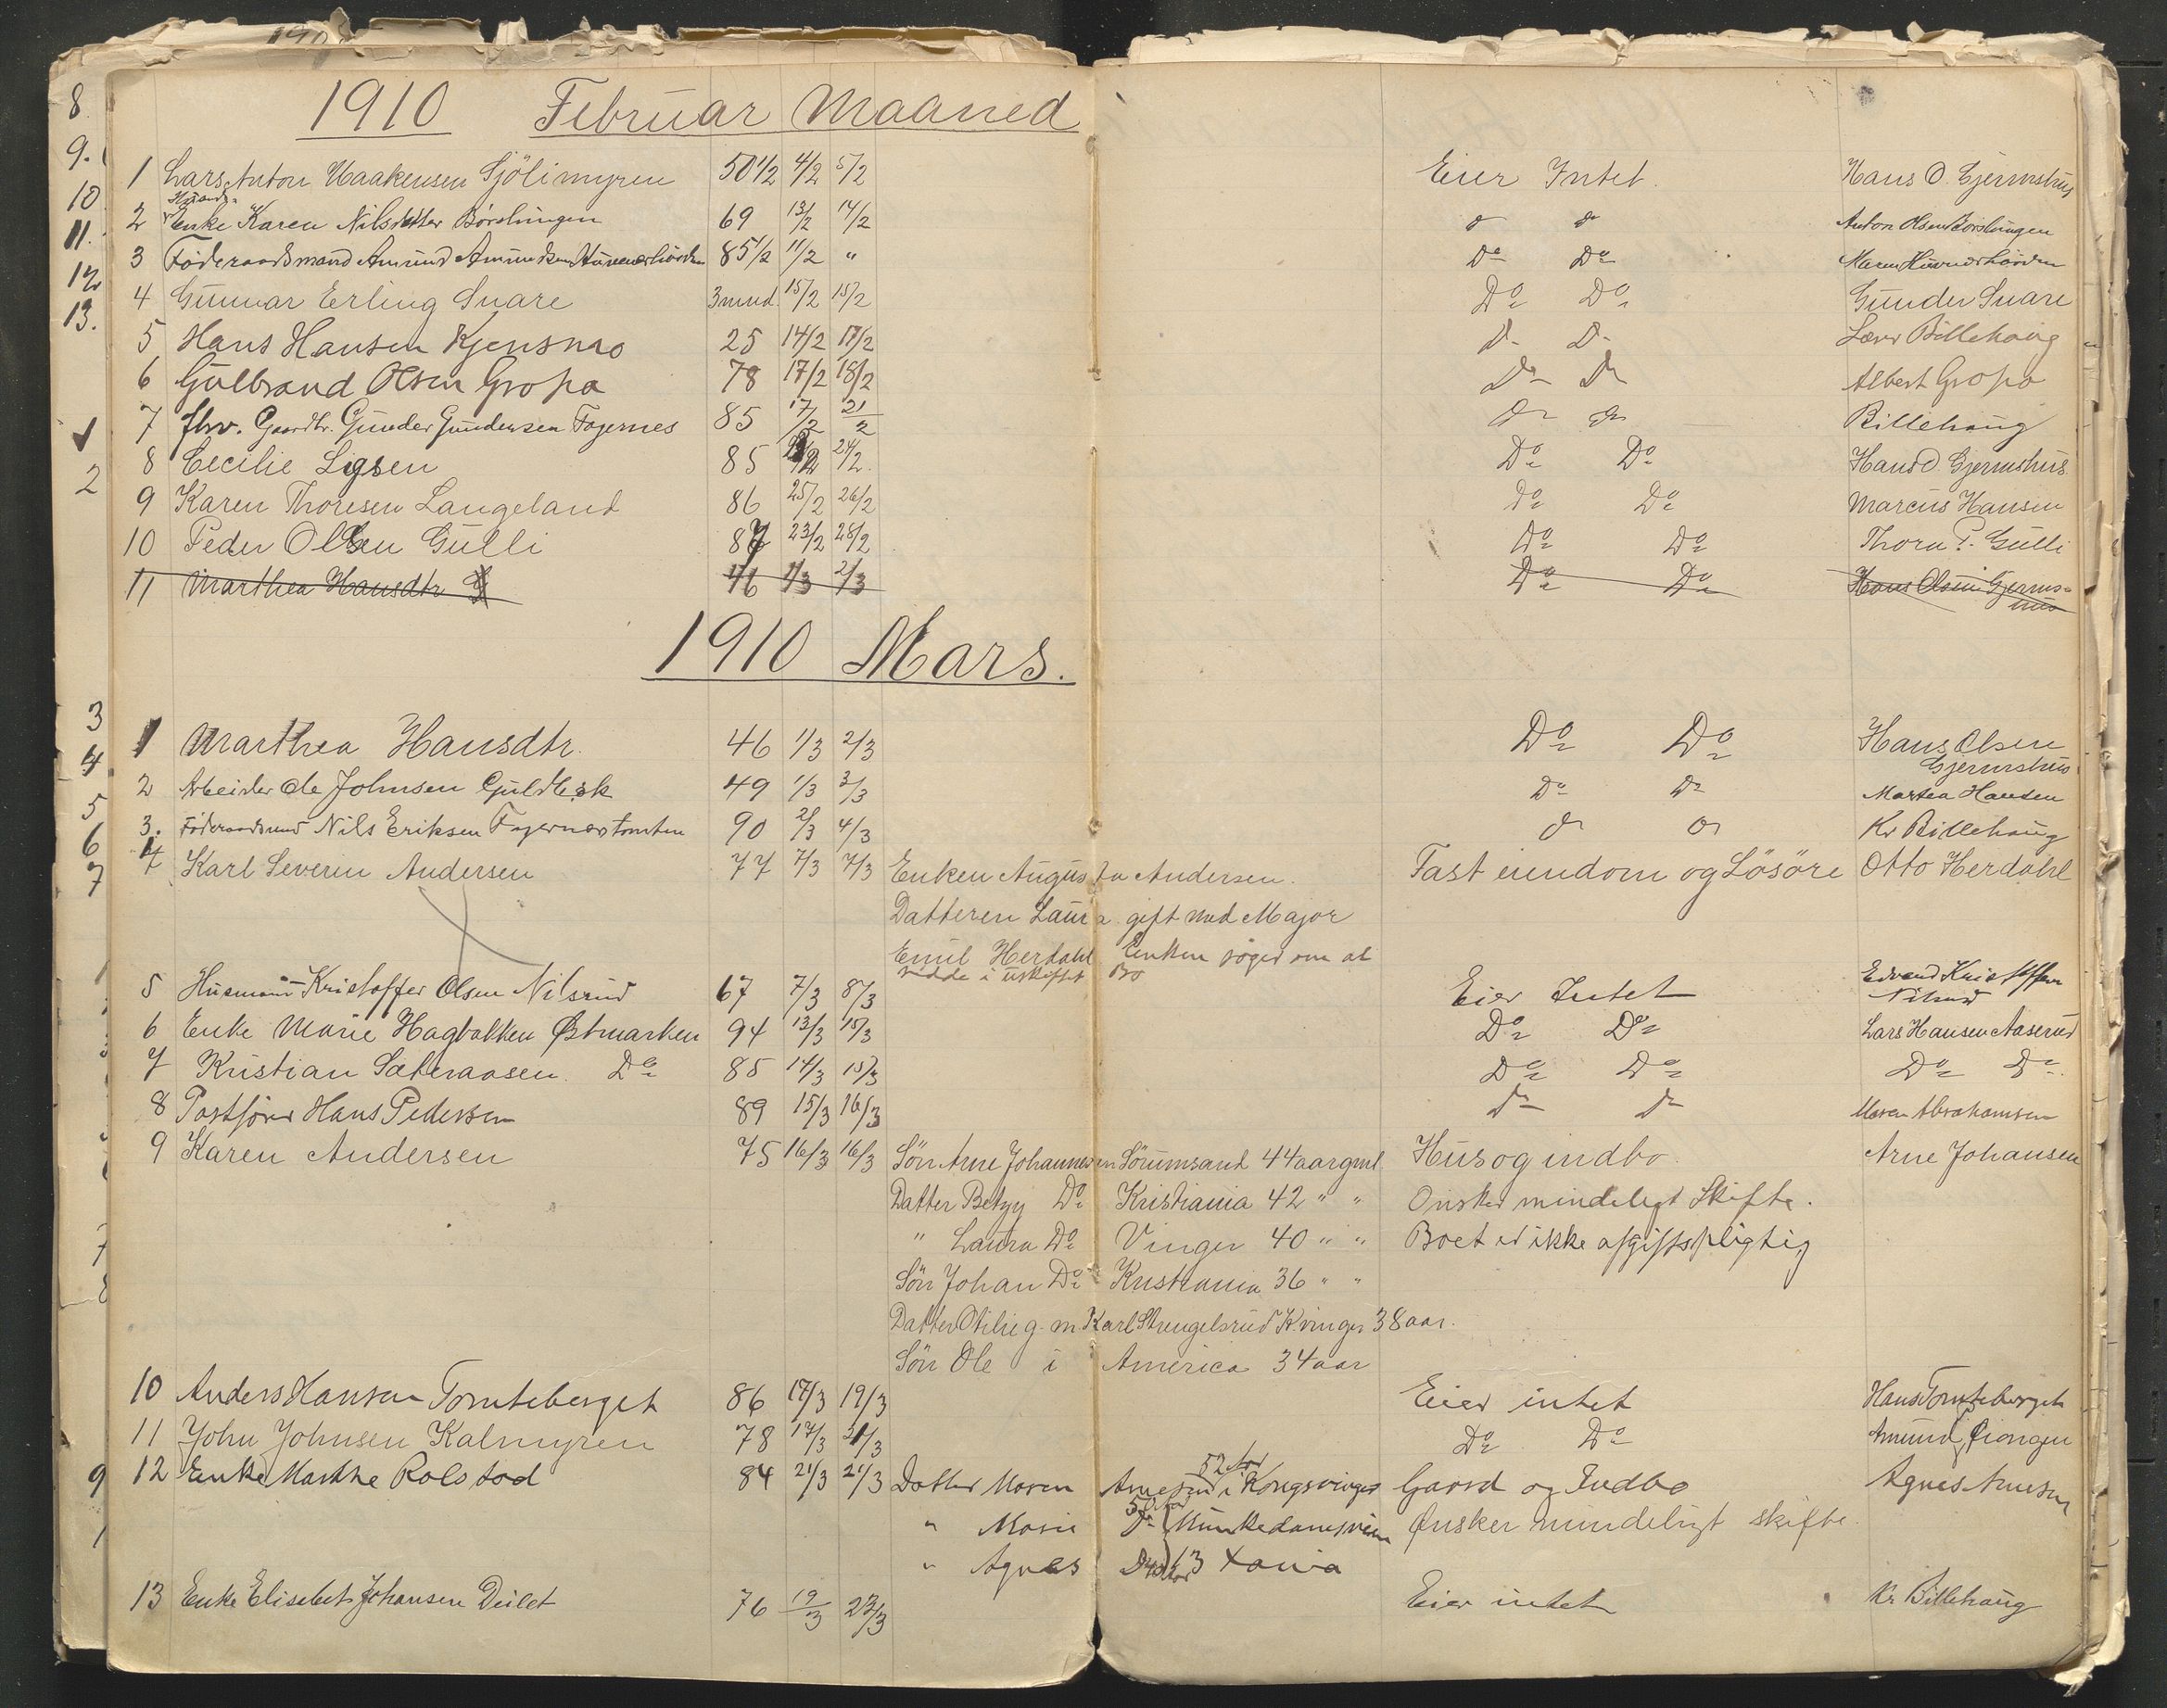 1910 Februar Maaned
1 Lars Anton Haakensen Sjölimyren 50 1/2 4/2 5/2 Eier Intet. Hans O. Gjermshus
Huusm.
2 Enke Karen Nilsdatter Börslungen 69 13/2 14/2 do do Anton Olsen Börslungen
3 Föderaadsmand Amund Amundsen 85 1/2 11/2 " Do Do Maren
4 Gunnar Erling Snare 3 mnd. 15/2 15/2 Do Do Gunder Snare
5 Hans Hansen Kjensmo 25 14/2 17/2 D. D. Billehaug
6 Gulbrand Olsen Gropa 78 17/2 18/2 Do Do Albert Gropa
7 fhv. Gaardbr. Gunder Gundersen Fagernes 85 17/2 21/2 Do Do Billehaug
8 Cecilie Ligsen 85 24/2. Do Do Hans O. Gjermshus
9 Karen Thoresen Langeland 86 25/2 26/2 Do Do Marcus Hansen
10 Peder Olsen Gulli 87 23/2 28/2 Do Do Thora P. Gulli
11 Marthea Hansdtr 46 1/3 2/3 Do Do Hans Olsen Gjerms=
hus
1910 Mars.
1 Marthea Hansdtr. 46 1/3 2/3 Do Do Hans Olsen
Gjermshus
2 Arbeider Ole Johnsen Guldbæk 49 1/3 3/3 Do Do Martea Hansen
3. Föderaadsmand Nils Eriksen Fagernestomten 90 2/3 4/3 Do Do Kr Billehaug
4 Karl Severin Andersen 77 7/3 7/3 Enken Augusta Andersen. Fast eiendom og Lösöre Otto Herdahl
Datteren Laura gift med Major
Emil Herdahl Enken söger om at
sidde i uskiftet Bo
5 Husmann Kristoffer Olsen Nilsrud 67 7/3 8/3 Eier Intet Edvard Kristoffersen
Nilsrud
6 Enke Marie Hagbakken Østmarken 94 13/3 15/3 Do Do Lars Hansen Aaserud
7 Kristian Sæteraasen. Do 85 14/3 15/3 Do Do Do Do.
8 Postförer Hans Pedersen 89 15/3 16/3 Do Do Maren Abrahamsen
9 Karen Andersen 75 16/3 16/3 Sön Arne Johannesen Sörumsand 44 aar gml Hus og indbo. Arne Johansen
Datter Betzy Do Kristiania 42 " " Önsker mindeligt Skifte.
" Laura Do Vinger 40 " " Boet er ikke afgiftspligtig
Sön Johan Do Kristiania 36 " "
Datter Otilie g. m. Karl Strengelsrud K.vinger 38 aar.
Sön Ole i America 34 aar
10 Anders Hansen Tomteberget 86 17/3 19/3 Eier intet Hans Tomteberget
11 John Johnsen Kalmyren 78 17/3 21/3 Do Do Amund
52 Aar
12 Enke Marthe Rolstad 84 21/3 21/3 Datter Maren Arnesen i Kongsvinger Gaard og Indbo Agnes Arnesen
50 Aar
" Marie Do Munkedamsveien Ønsker mindeligt skifte.
" Agnes Do 13 Xania
13 Enke Elisabet Johansen Deilet 76 19/3 23/3 Eier intet Kr Billehaug
8
9.
10
11.
12
13.
1
2
3
4
5
6
7
9
1